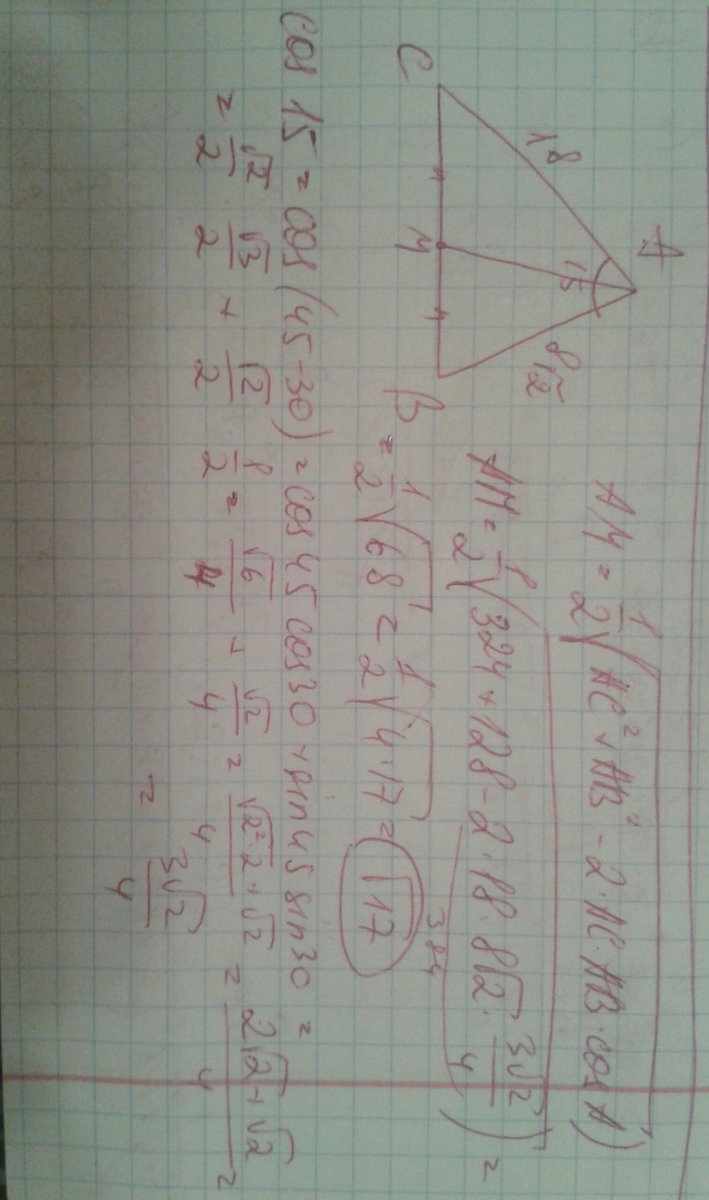 A
18
15
8√2
C
M
B
AM = 1/2 √(AC² + AB² - 2·AC·AB·cos A)
AM = 1/2 √(324 + 128 - 2·18·8√2 · 3√2/4) =
384
= 1/2 √68 = 1/2 √4·17 = √17
cos 15 = cos(45-30) = cos45 cos30 + sin45 sin30 =
= √2/2 √3/2 + √2/2 1/2 = √6/4 + √2/4 = (√2²·2 + √2)/4 = (2√2 + √2)/4 =
= 3√2/4